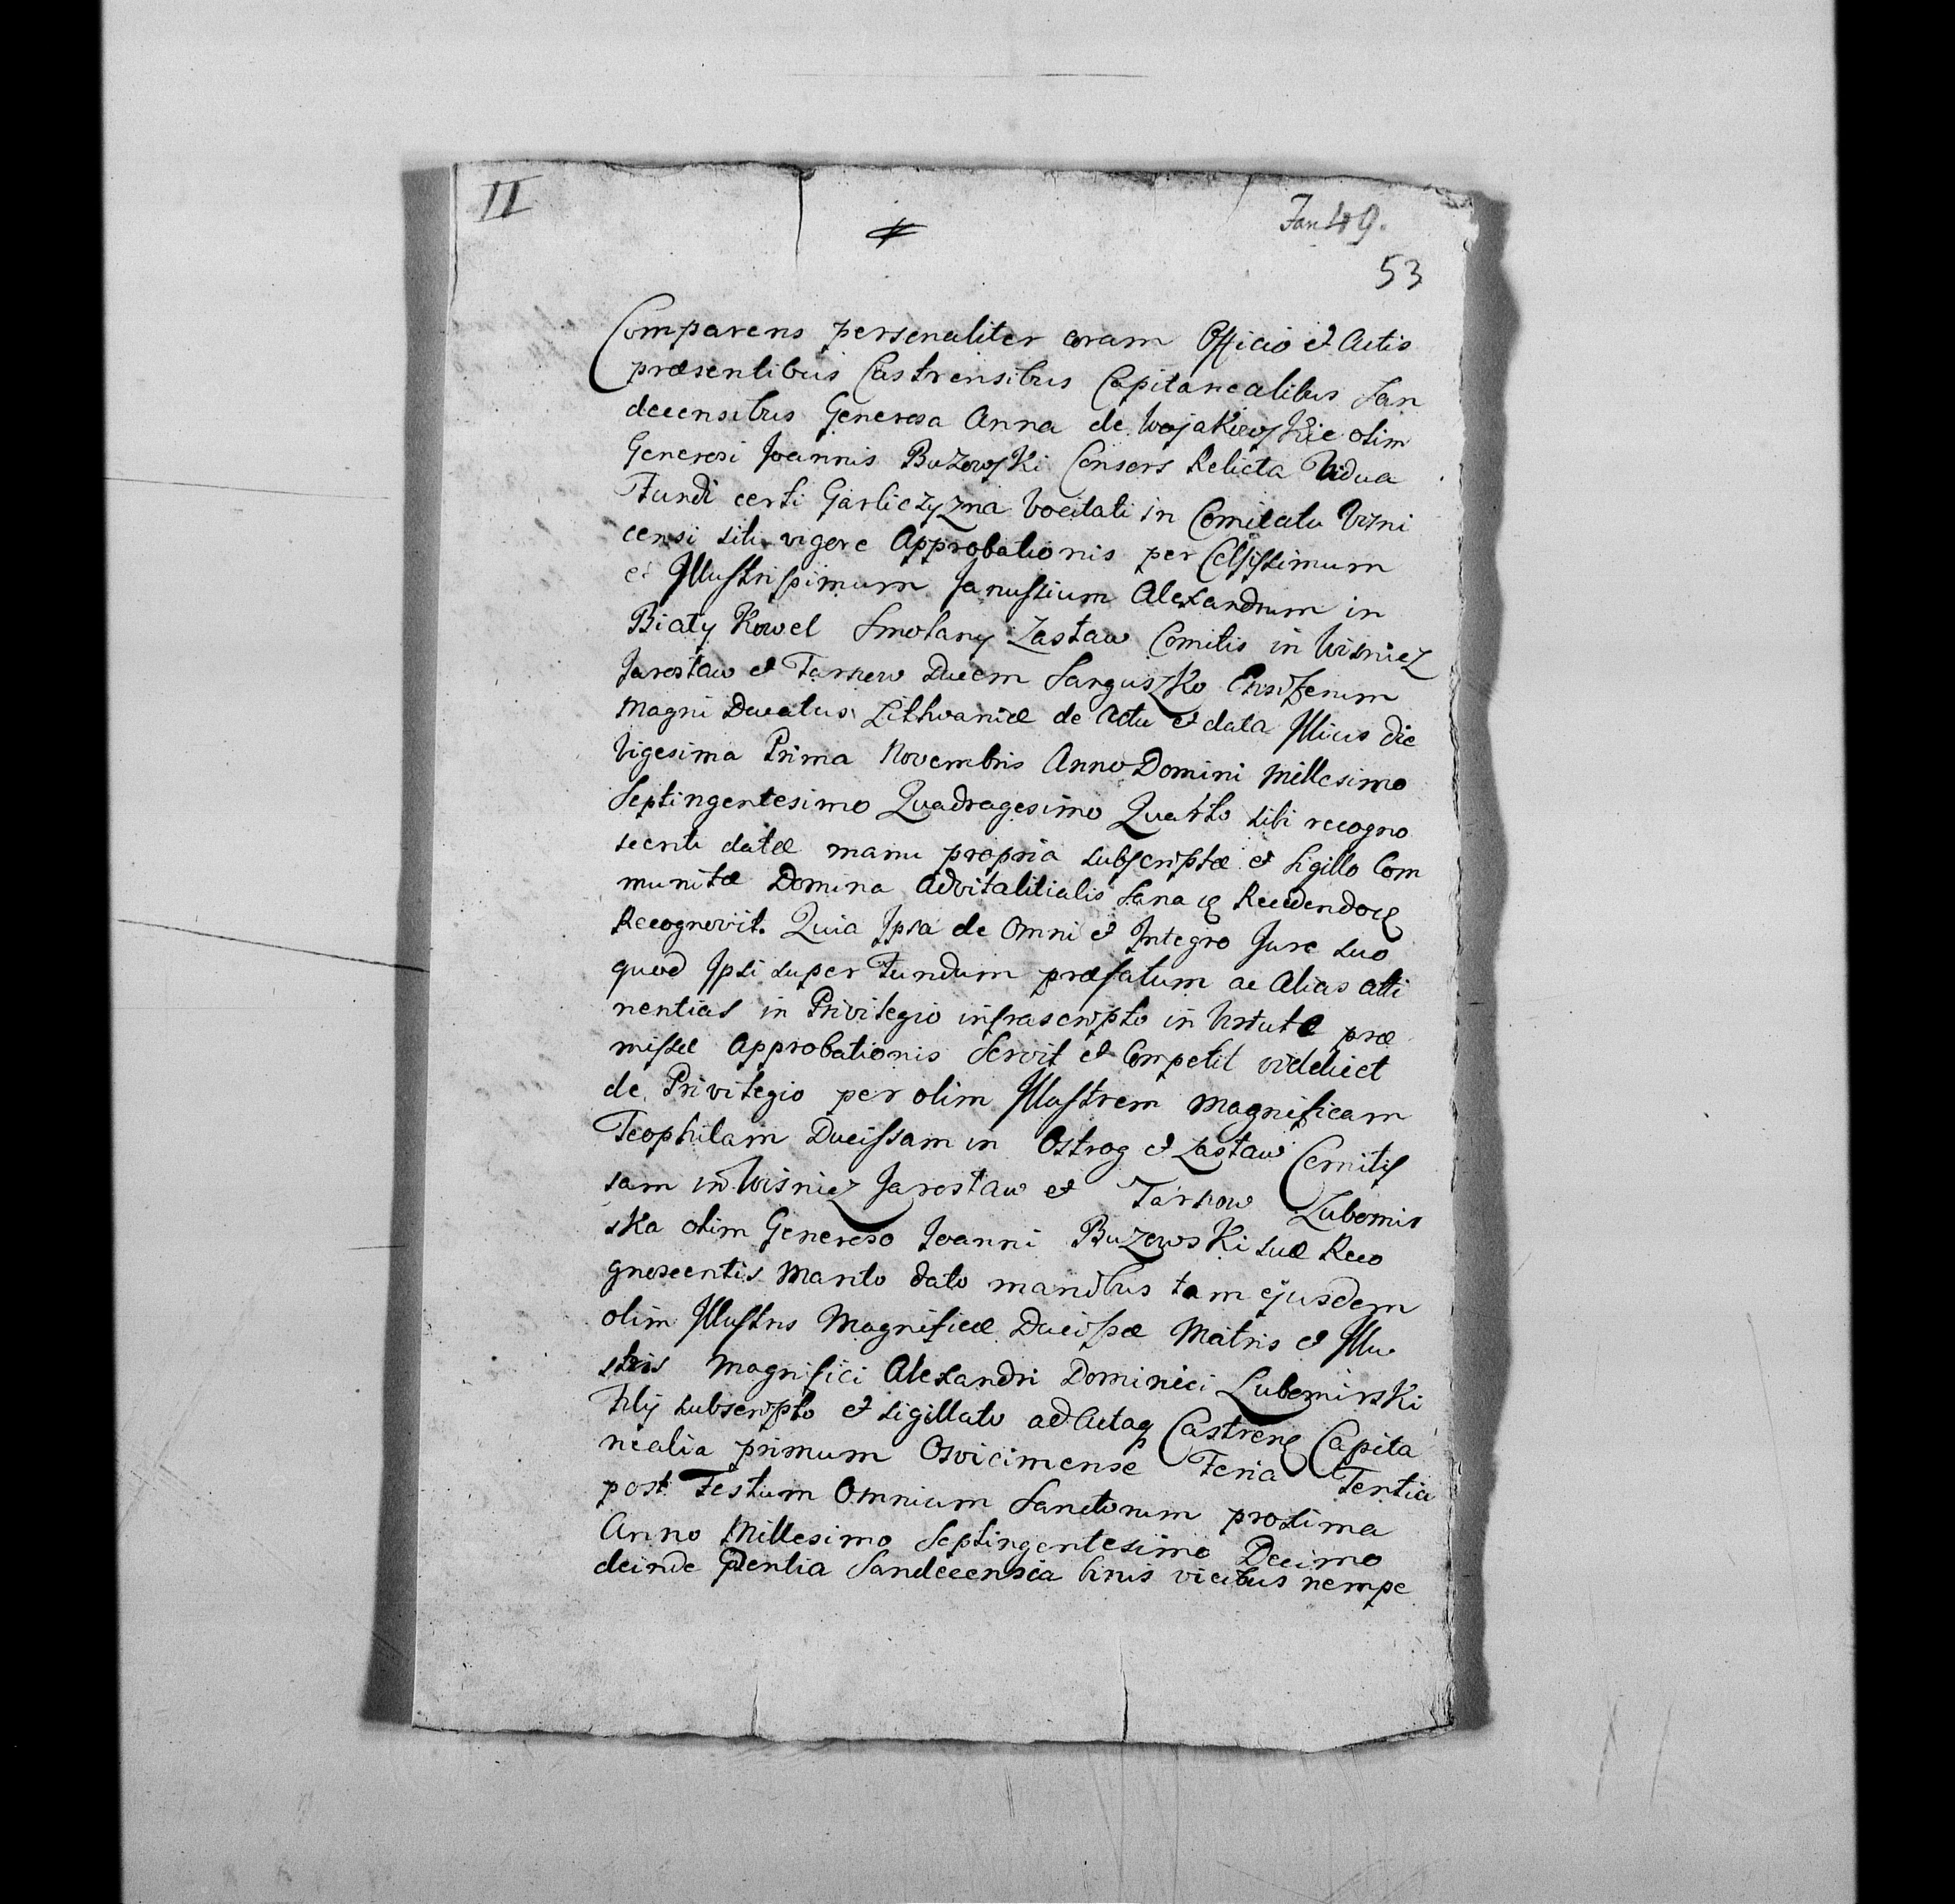 II
Fan 49.
53
Comparens personaliter coram Officio et Actis
præsentibus Castrensibus Capitanealibus San
decensibus Generosa Anna de Wojakowskie olim
Generosi Joannis Buzowski Consors Relicta Vidua
Fundi certi Garliczyzna Vocitati in Comitatu Visni
censi siti vigore Approbationis per Celsissimum
et Illustrissimum Janussium Alexandrum in
Biały Kowel Smolany Zasław Comitis in Wisnicz
Jarosław et Tarnow Ducem Sanguszko Ensiferum
Magni Ducatus Lithvaniæ de Actu et data Illius die
Vigesima Prima Novembris Anno Domini Millesimo
Septingentesimo Quadragesimo Quarto sibi recogno
scenti datæ manu propria subscriptæ et Sigillo Com
munitæ Domina Advitalitialis Sana
Recognovit. Quia Ipsa de Omni et Integro Jure suo
quod Ipsi super Fundum præfatum ac Alias atti
nentias in Privilegio infrascripto in Virtute præ
missæ Approbationis Servit et Competit videlicet
de Privilegio per olim Illustrem Magnificam
Teophilam Ducissam in Ostrog et Zasław Comitis
sam in Wisnicz Jarosław et Tarnow Lubomir
ska olim Generoso Joanni Buzowski suæ Reco
gnoscentis Marito dato manibus tam ejusdem
olim Illustris Magnificæ Ducissæ Matris et Illu
stris Magnifici Alexandri Dominici Lubomirski
Filij subscripto et sigillato ad Actaq Castren Capita
nealia primum Osvicimense Feria Tertia
post Festum Omnium Sanctorum proxima
Anno Millesimo Septingentesimo Decimo
deinde Sandecensia binis vicibus nempe